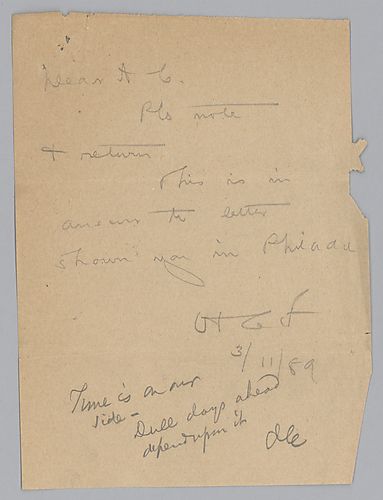 Dear A C.
Pls note
& return
This is in
answr to letter
shown you in Philada
H C F
3/11/89
Time is on our
side -
Dull days ahead
depend upon it